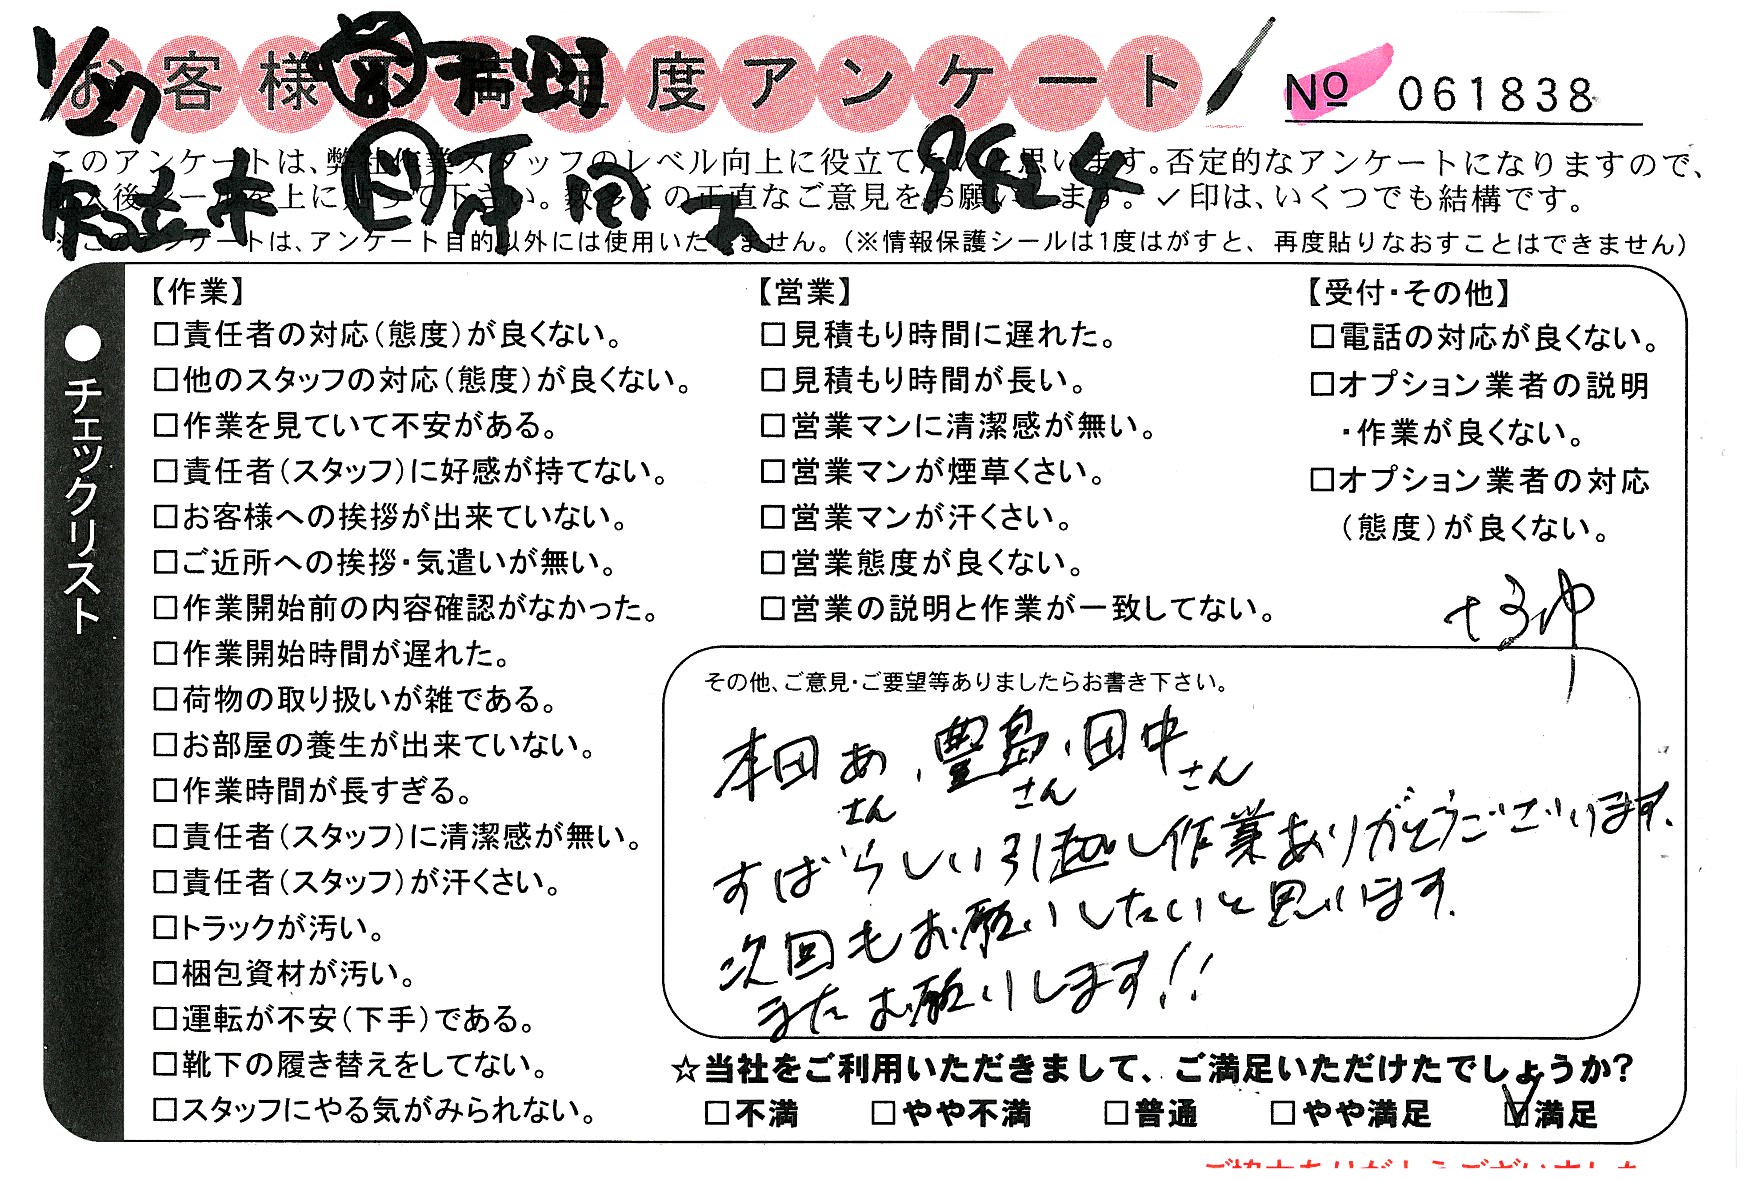 1/27
お客様不満足度アンケート
No 061838
このアンケートは、弊社作業スタッフのレベル向上に役立てたいと思います。否定的なアンケートになりますので、
9424
後シールを上に貼って下さい。数多くの正直なご意見をお願いします。✓印は、いくつでも結構です。
※このアンケートは、アンケート目的以外には使用いたしません。(※情報保護シールは1度はがすと、再度貼りなおすことはできません)
●チェックリスト
【作業】
□責任者の対応(態度)が良くない。
□他のスタッフの対応(態度)が良くない。
□作業を見ていて不安がある。
□責任者(スタッフ)に好感が持てない。
□お客様への挨拶が出来ていない。
□ご近所への挨拶・気遣いが無い。
□作業開始前の内容確認がなかった。
□作業開始時間が遅れた。
□荷物の取り扱いが雑である。
□お部屋の養生が出来ていない。
□作業時間が長すぎる。
□責任者(スタッフ)に清潔感が無い。
□責任者(スタッフ)が汗くさい。
□トラックが汚い。
□梱包資材が汚い。
□運転が不安(下手)である。
□靴下の履き替えをしてない。
□スタッフにやる気がみられない。
【営業】
□見積もり時間に遅れた。
□見積もり時間が長い。
□営業マンに清潔感が無い。
□営業マンが煙草くさい。
□営業マンが汗くさい。
□営業態度が良くない。
□営業の説明と作業が一致してない。
【受付・その他】
□電話の対応が良くない。
□オプション業者の説明
・作業が良くない。
□オプション業者の対応
(態度)が良くない。
その他、ご意見・ご要望等ありましたらお書き下さい。
本田あさん、豊島さん、田中さん
すばらしい引越し作業ありがとうございます。
次回もお願いしたいと思います。
またお願いします!!
☆当社をご利用いただきまして、ご満足いただけたでしょうか?
□不満 □やや不満 □普通 □やや満足 ☑満足
ご協力ありがとうございました